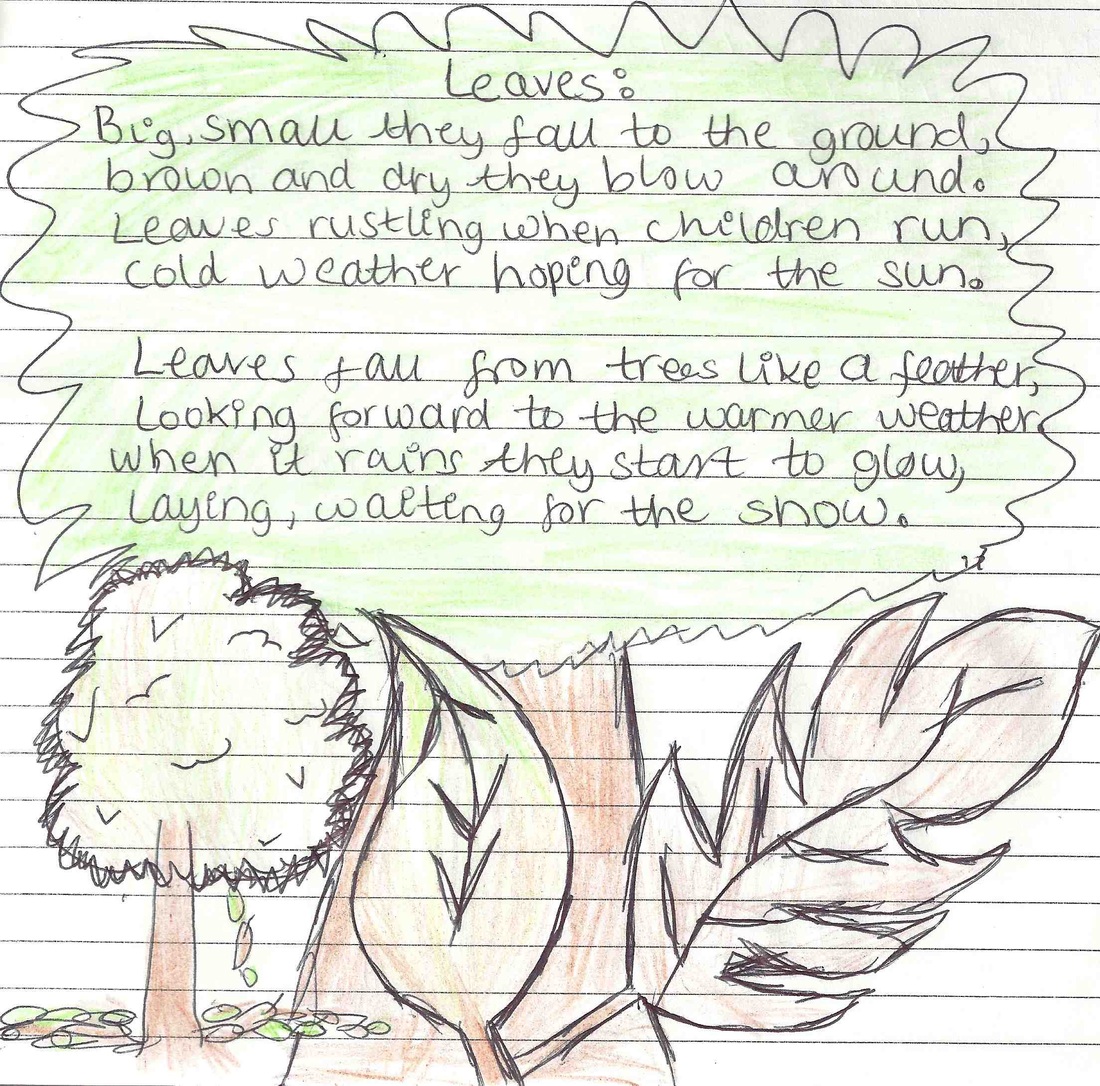 Leaves:
Big, small they fall to the ground,
brown and dry they blow around.
Leaves rustling when children run,
cold weather hoping for the sun.
Leaves fall from trees like a feather,
Looking forward to the warmer weather,
when it rains they start to glow,
laying, waiting for the snow.